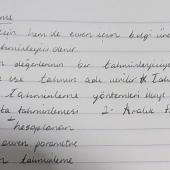 için hem de evren için bilgi üre
tahminleyici denir.
n değerlerinin bir tahminleyiciye
ise tahmin adı verilir. * Tah
tahminleme yöntemleri ikiye
ta tahminlemesi 2- Aralık t
hesaplanan
evren parametre
tahminleme